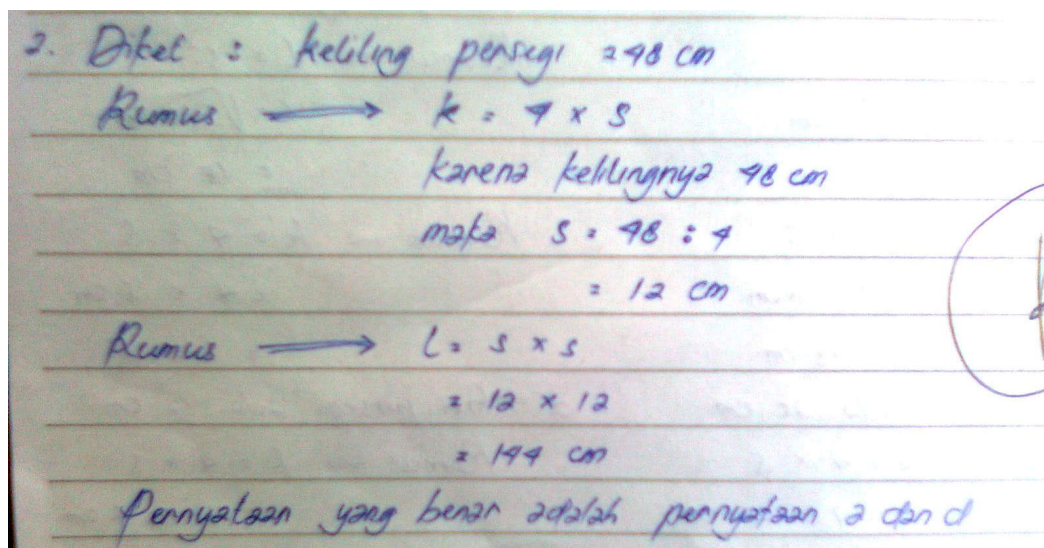 2. Diket : keliling persegi = 48 cm
Rumus → k = 4 x s
karena kelilingnya 48 cm
maka s = 48 : 4
= 12 cm
Rumus → L = s x s
= 12 x 12
= 144 cm
Pernyataan yang benar adalah pernyataan a dan d